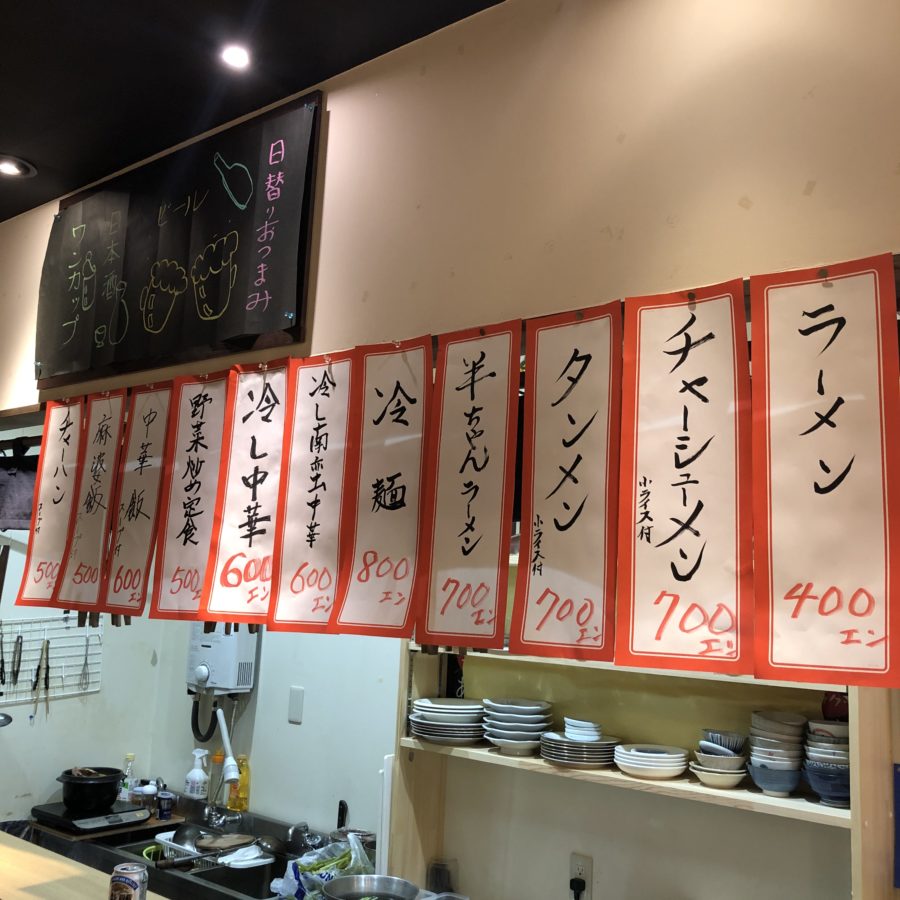 日替りおつまみ
ビール
日本酒
ワンカップ
ラーメン
400エン
チャーシューメン
小ライス付
700エン
タンメン
小ライス付
700エン
半ちゃんラーメン
700エン
冷麺
800エン
冷し南蛮中華
600エン
冷し中華
600エン
野菜炒め定食
500エン
中華飯
スープ付
600エン
麻婆飯
500
チャーハン
スープ付
500エン